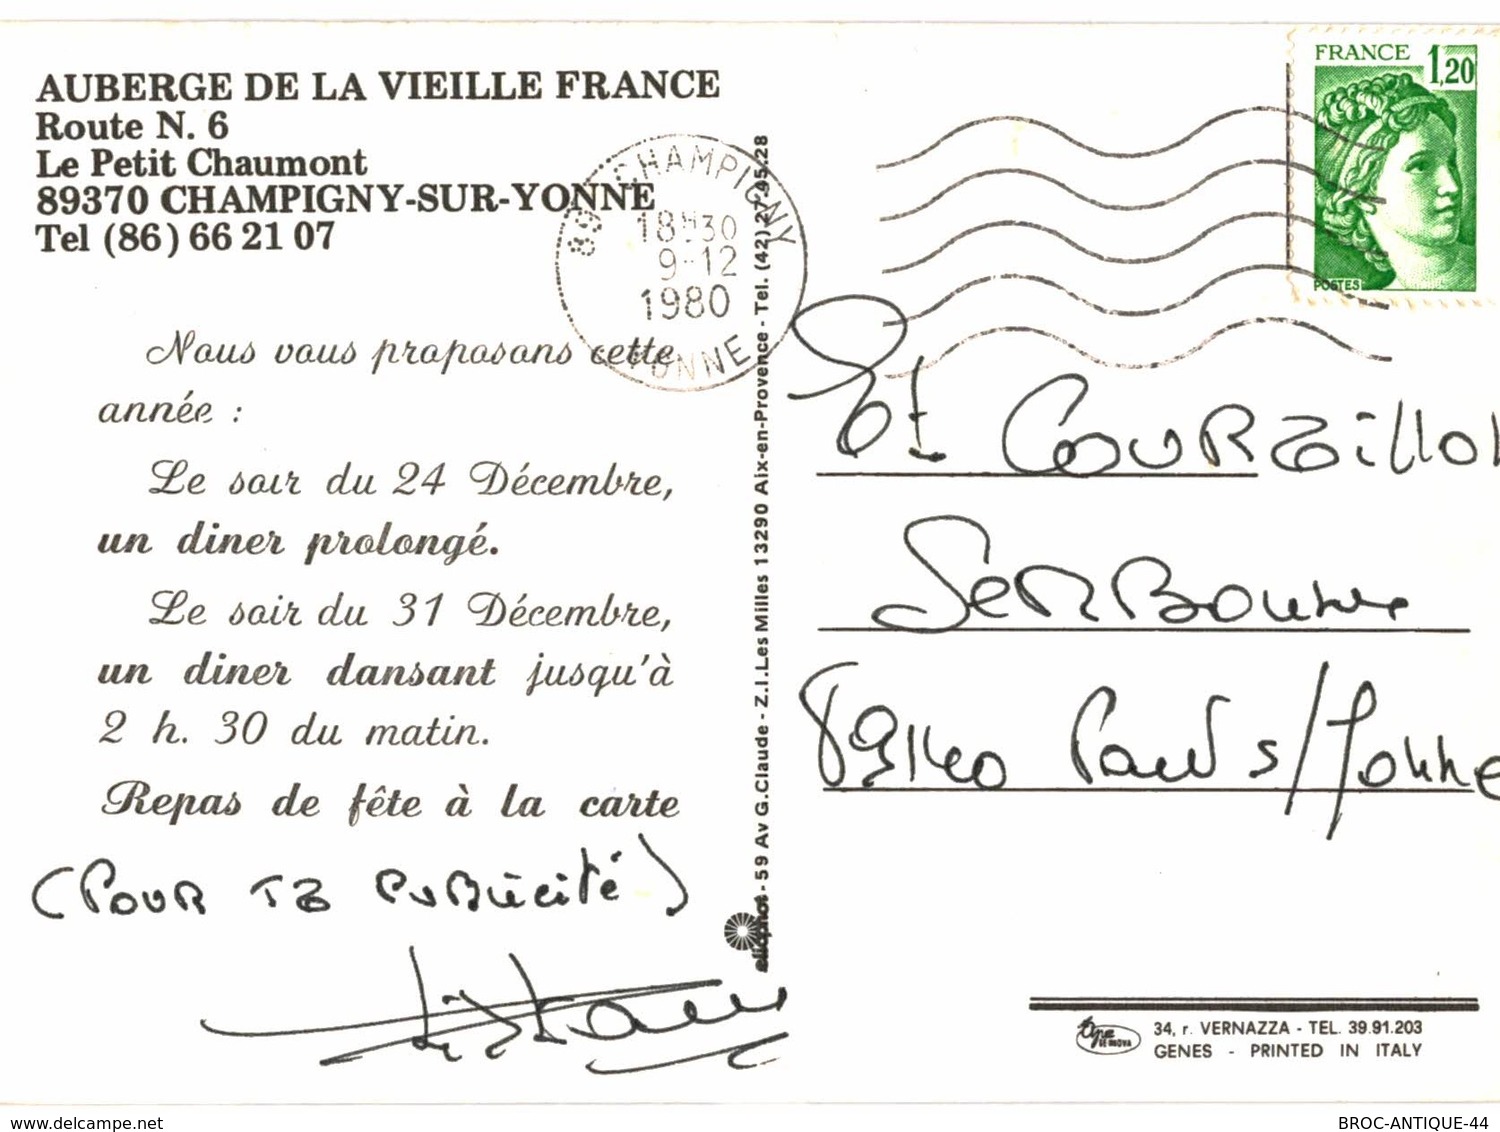 AUBERGE DE LA VIEILLE FRANCE
Route N. 6
Le Petit Chaumont
89370 CHAMPIGNY-SUR-YONNE
Tel (86) 66 21 07
Nous vous proposons cette
année :
Le soir du 24 Décembre,
un diner prolongé.
Le soir du 31 Décembre,
un diner dansant jusqu'à
2 h. 30 du matin.
Repas de fête à la carte
(POUR TA PUBLICITÉ)
59 Av G.Claude - Z.I. Les Milles 13290 Aix-en-Provence - Tel. (42) 27.95.28
89 CHAMPIGNY
18H30
9-12
1980
YONNE
FRANCE
1,20
POSTES
Et COURTILLO
SERBONNE
89140 Pont s/Yonne
34, r. VERNAZZA - TEL. 39.91.203
GENES - PRINTED IN ITALY
www.delcampe.net
BROC-ANTIQUE-44